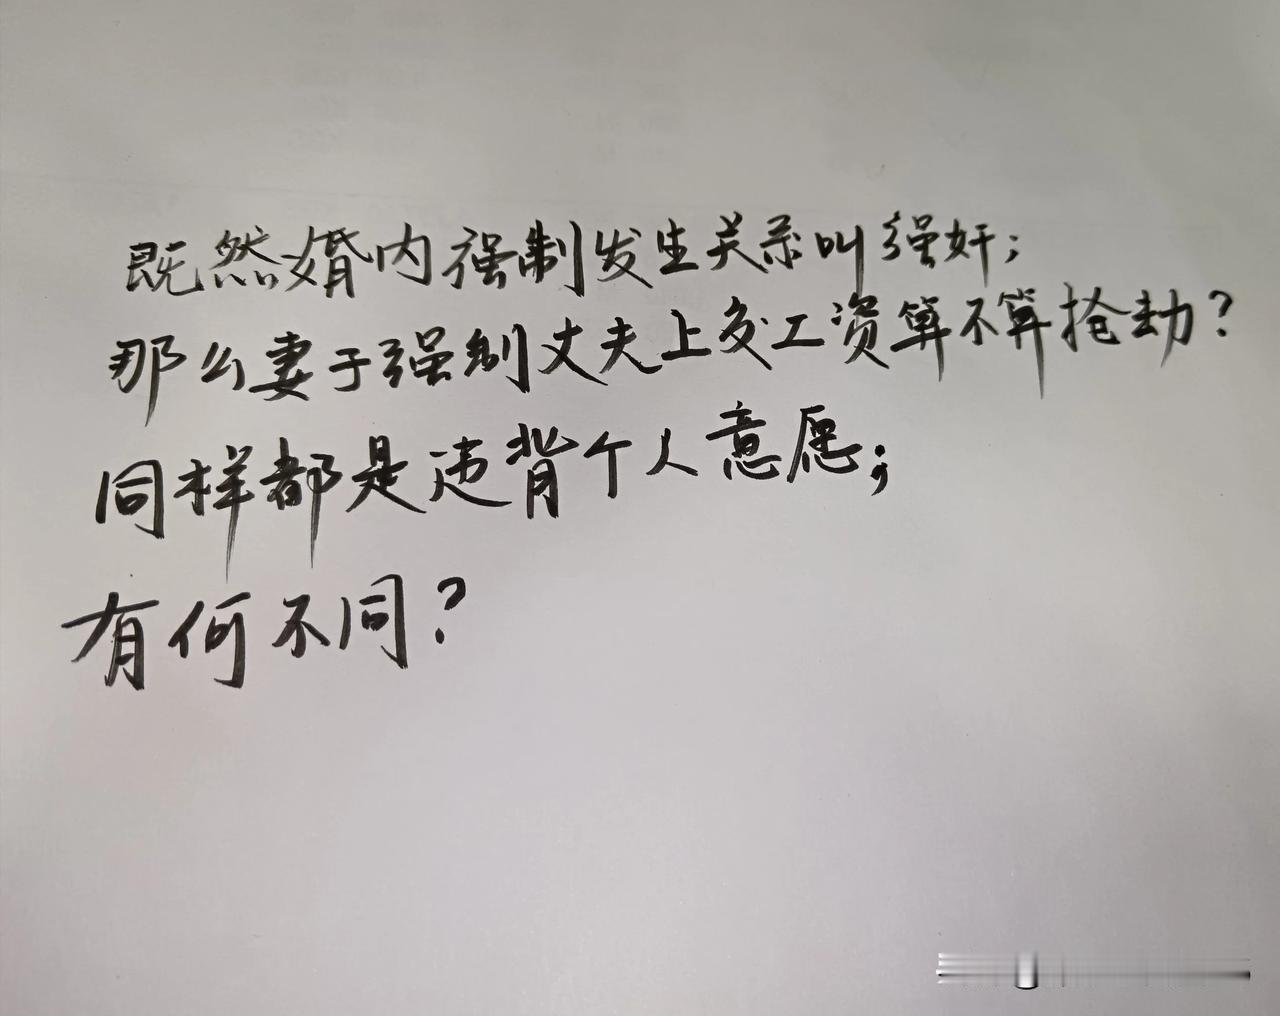 既然婚内强制发生关系叫强奸；
那么妻于强制丈夫上交工资算不算抢劫？
同样都是违背个人意愿；
有何不同？